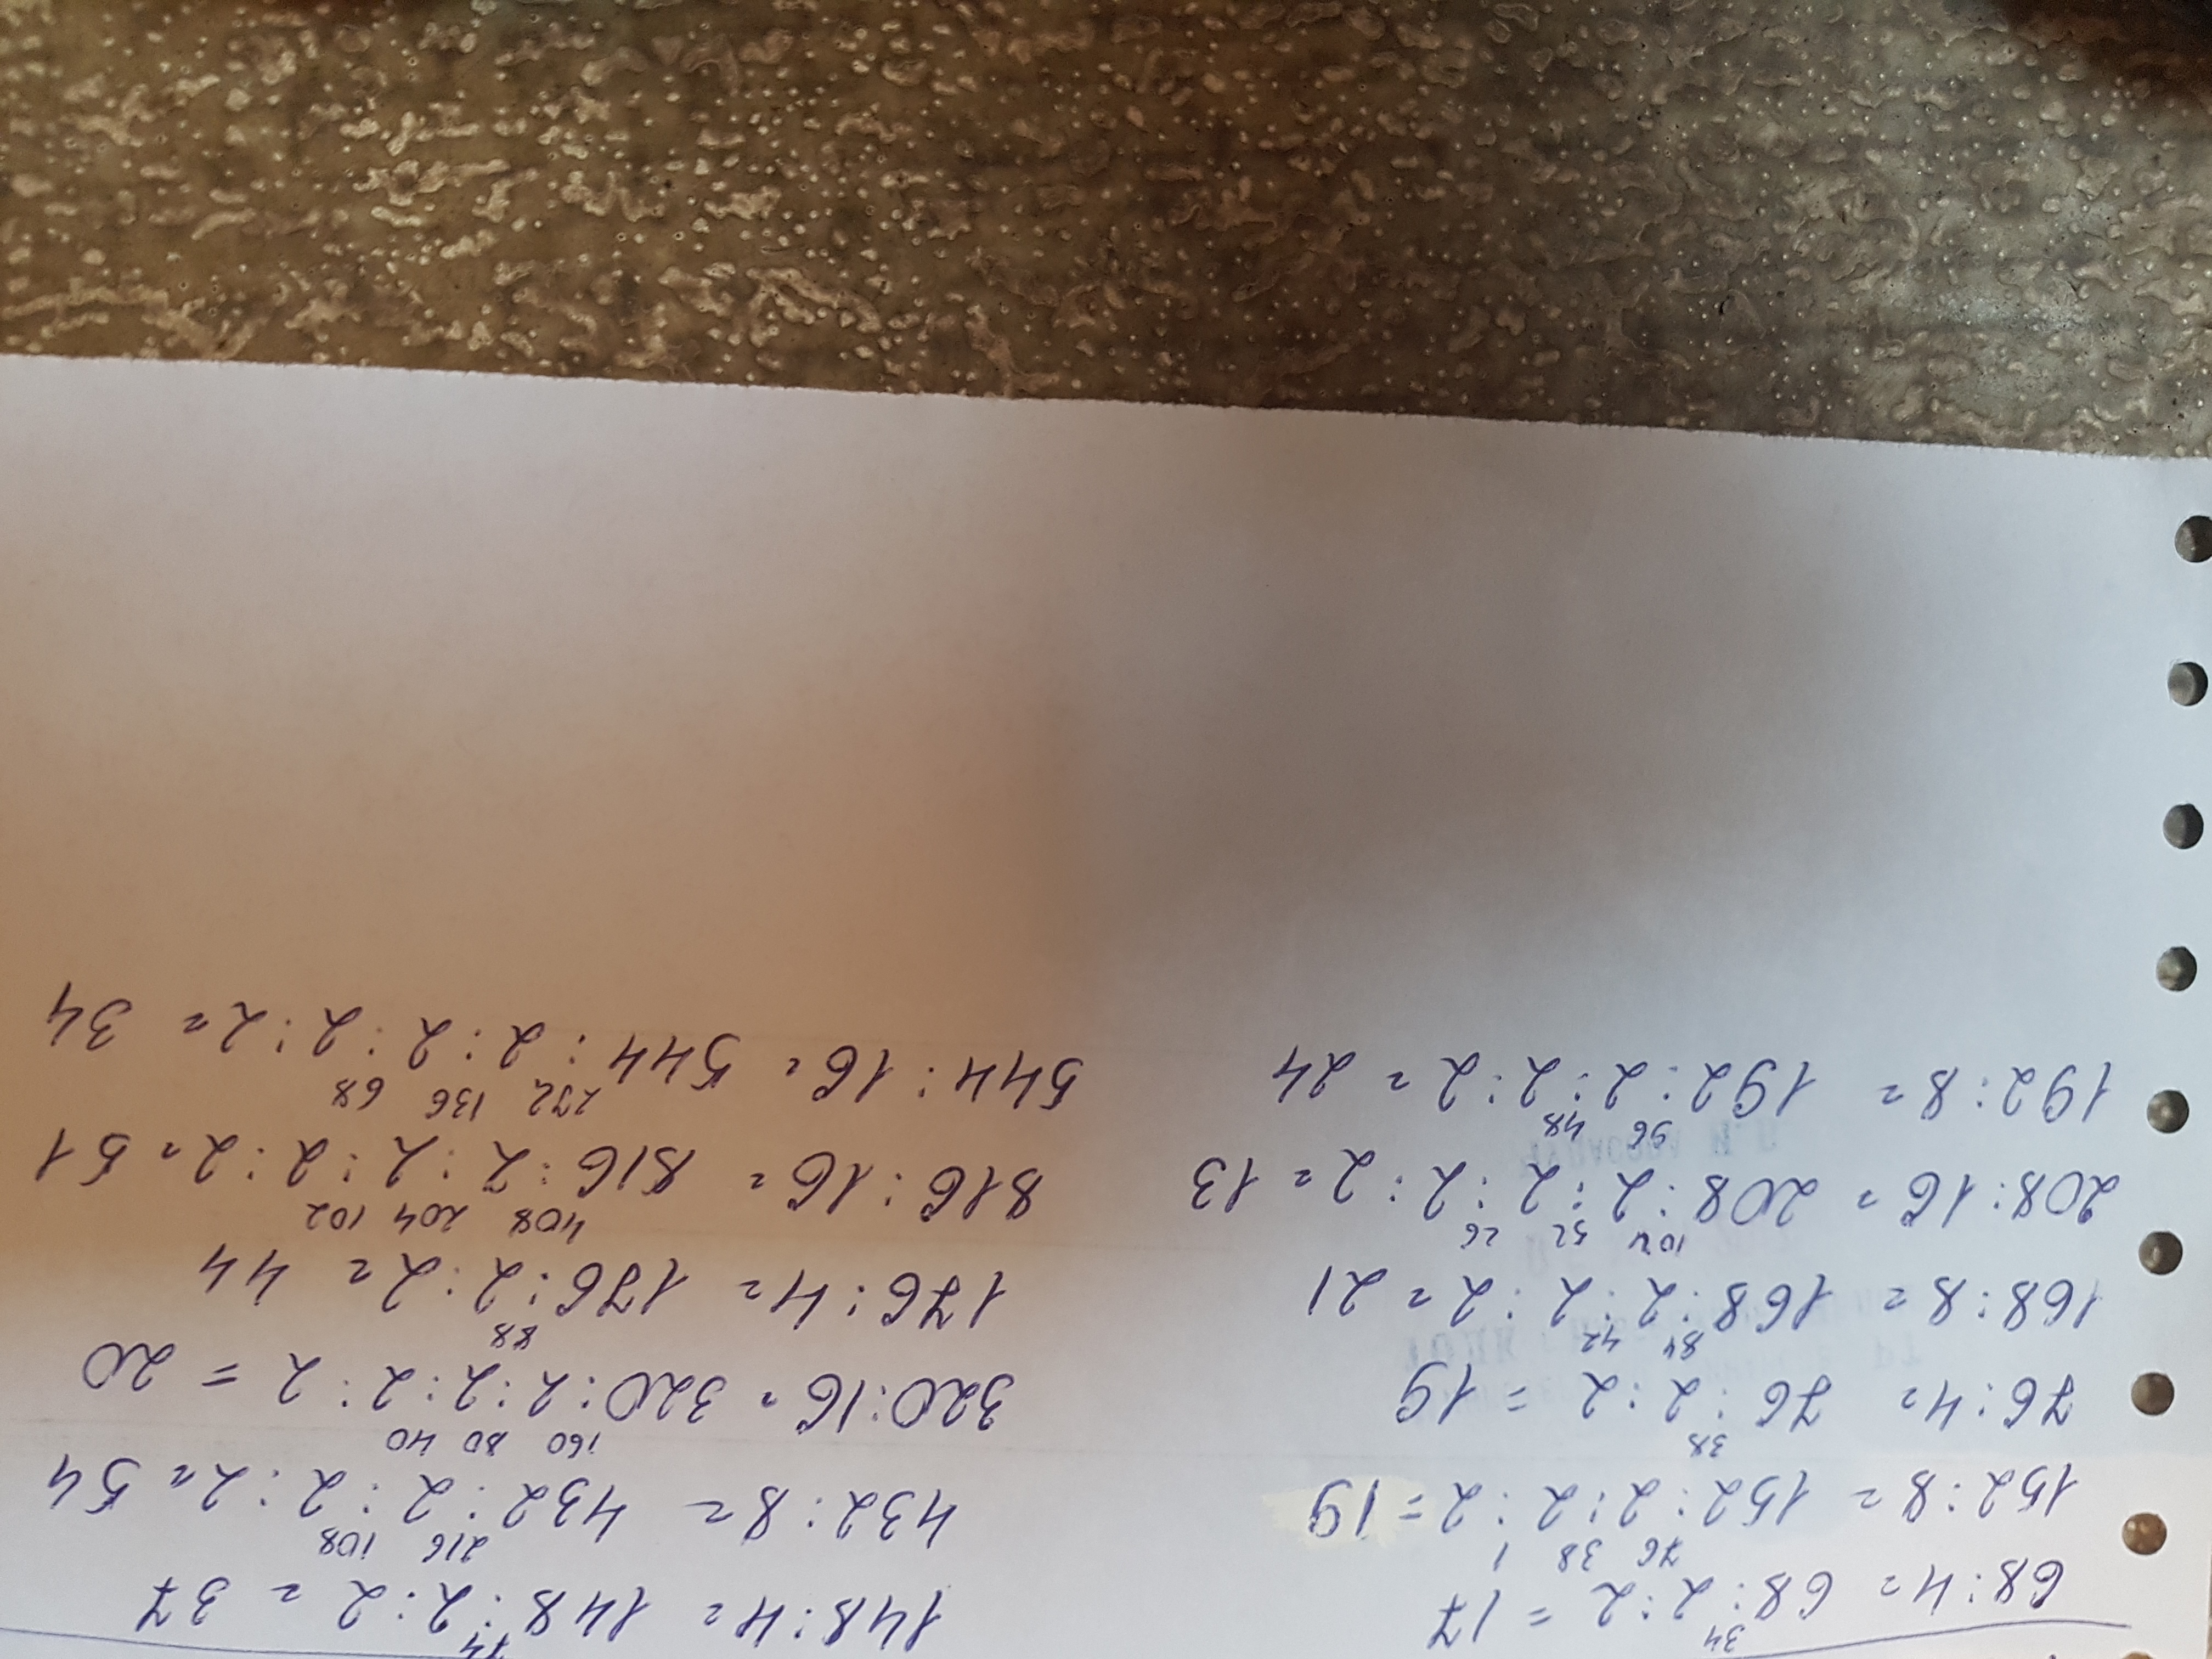 34
68:4= 68:2:2 = 17
76 38 1
152:8= 152:2:2:2=19
38
76:4= 76:2:2 = 19
84 42
168:8= 168:2:2:2=21
104 52 26
208:16= 208:2:2:2:2=13
96 48
192:8= 192:2:2:2=24
74
148:4= 148:2:2 = 37
216 108
432:8= 432:2:2:2=54
160 80 40
320:16= 320:2:2:2:2 = 20
88
176:4= 176:2:2= 44
408 204 102
816:16= 816:2:2:2:2=51
272 136 68
544:16= 544:2:2:2:2= 34